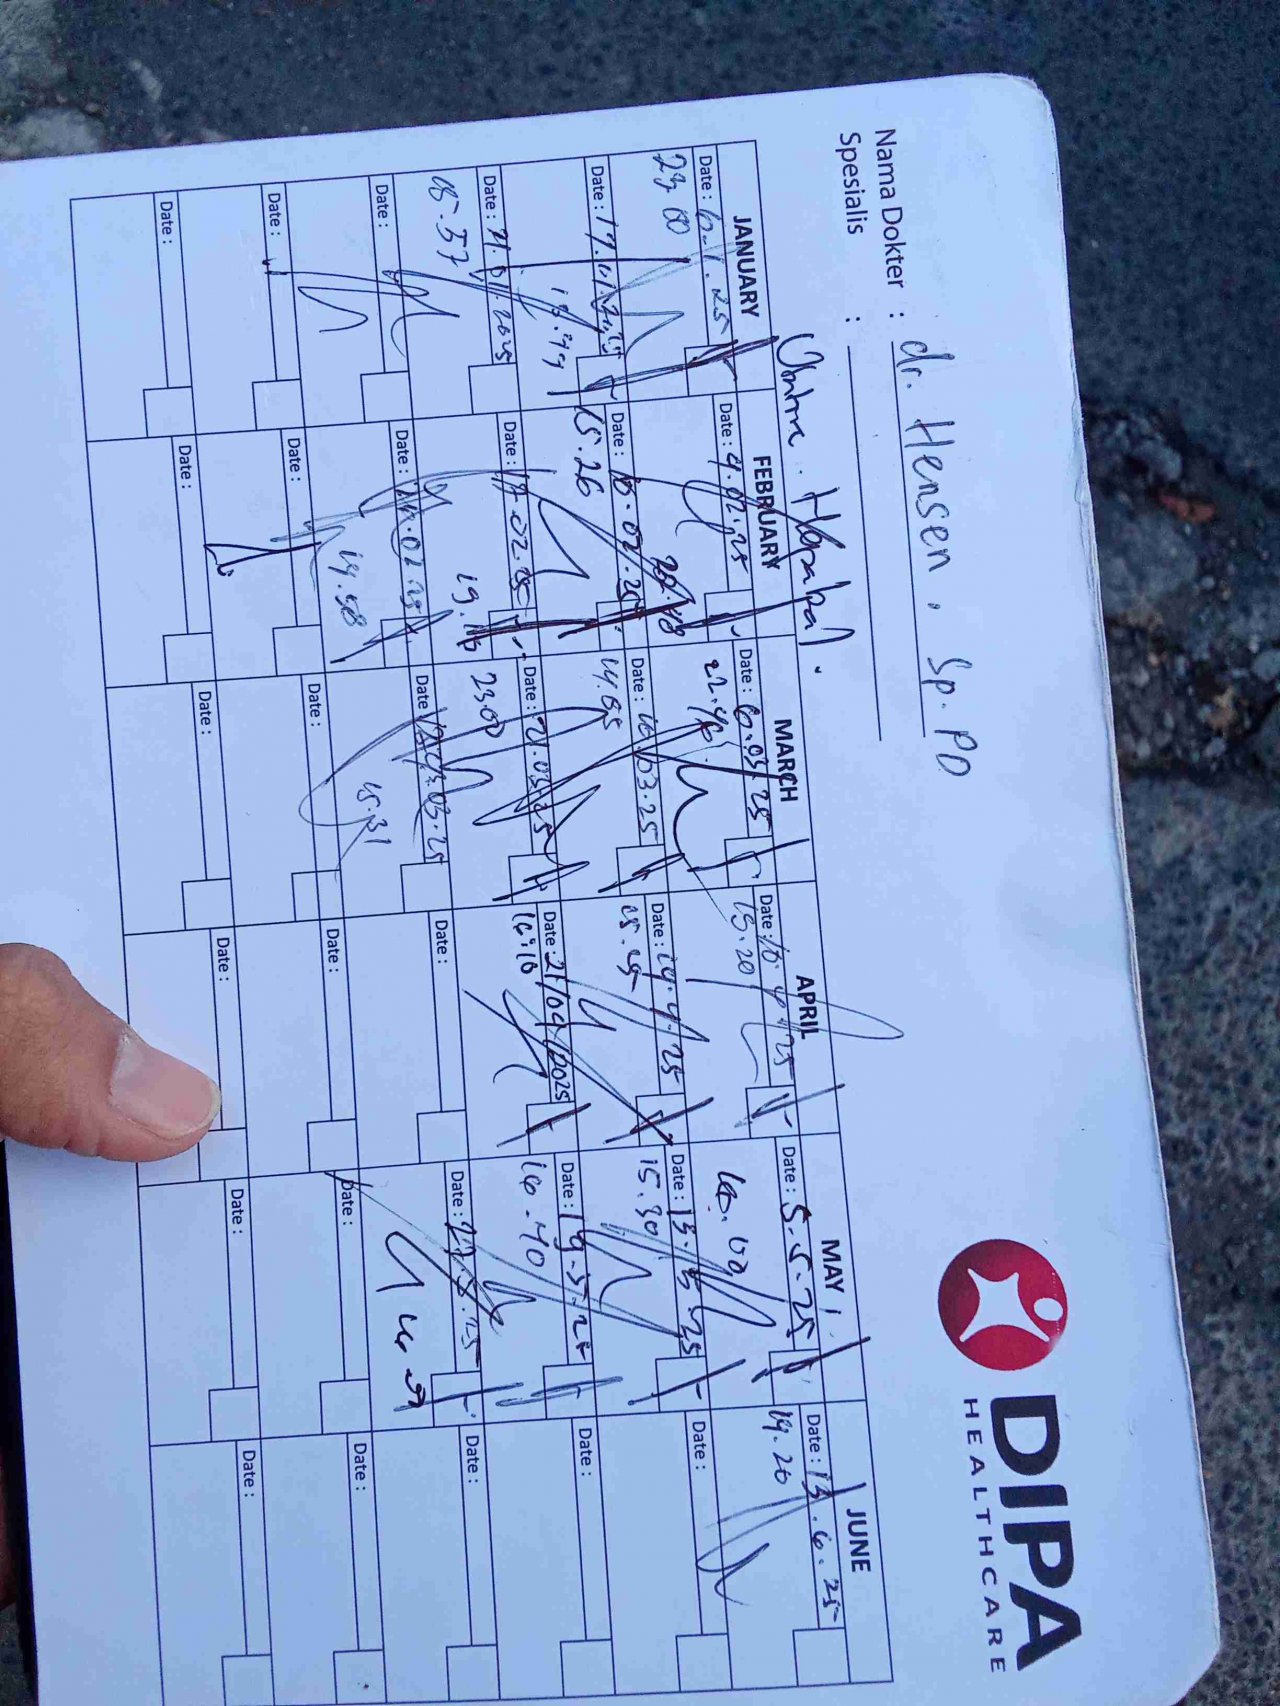 DIPA
HEALTHCARE
Nama Dokter : dr. Hensen, Sp. PD
Spesialis :
JANUARY
FEBRUARY
MARCH
APRIL
MAY
JUNE
Date : 6.1.25
Date : 4.02.25
Date : 6.03.25
Date : 10.4.25
Date : 5.5.25
Date : 13.6.25
23,00
22.48
22.40
15.20
16.00
19.20
Date : 17.01.2025
Date : 10.02.25
Date : 10.03.25
Date : 14.4.25
Date : 13.5.25
Date :
15.26
15.30
Date : 21.01.2025
Date : 17.02.25
Date : 21.03.25
Date : 21/04/2025
Date : 19.5.25
Date :
18.37
19.16
23.00
16:10
16.40
Date :
Date :
Date :
Date :
Date : 27.5.25
Date :
19.58
15.31
Date :
Date :
Date :
Date :
Date :
Date :
Date :
Date :
Date :
Date :
Date :
Date :